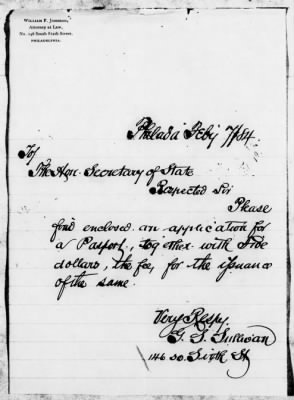 William F. Johnson,
Attorney at Law,
No. 146 South Sixth Street,
Philadelphia.
Philada Feby 7/84
To/
The Hon. Secretary of State
Respected Sir
Please
find enclosed an application for
a Passport, together with Five
dollars, the fee, for the issuance
of the same.
Very Respy,
G. S. Sullivan
146 So. Sixth St